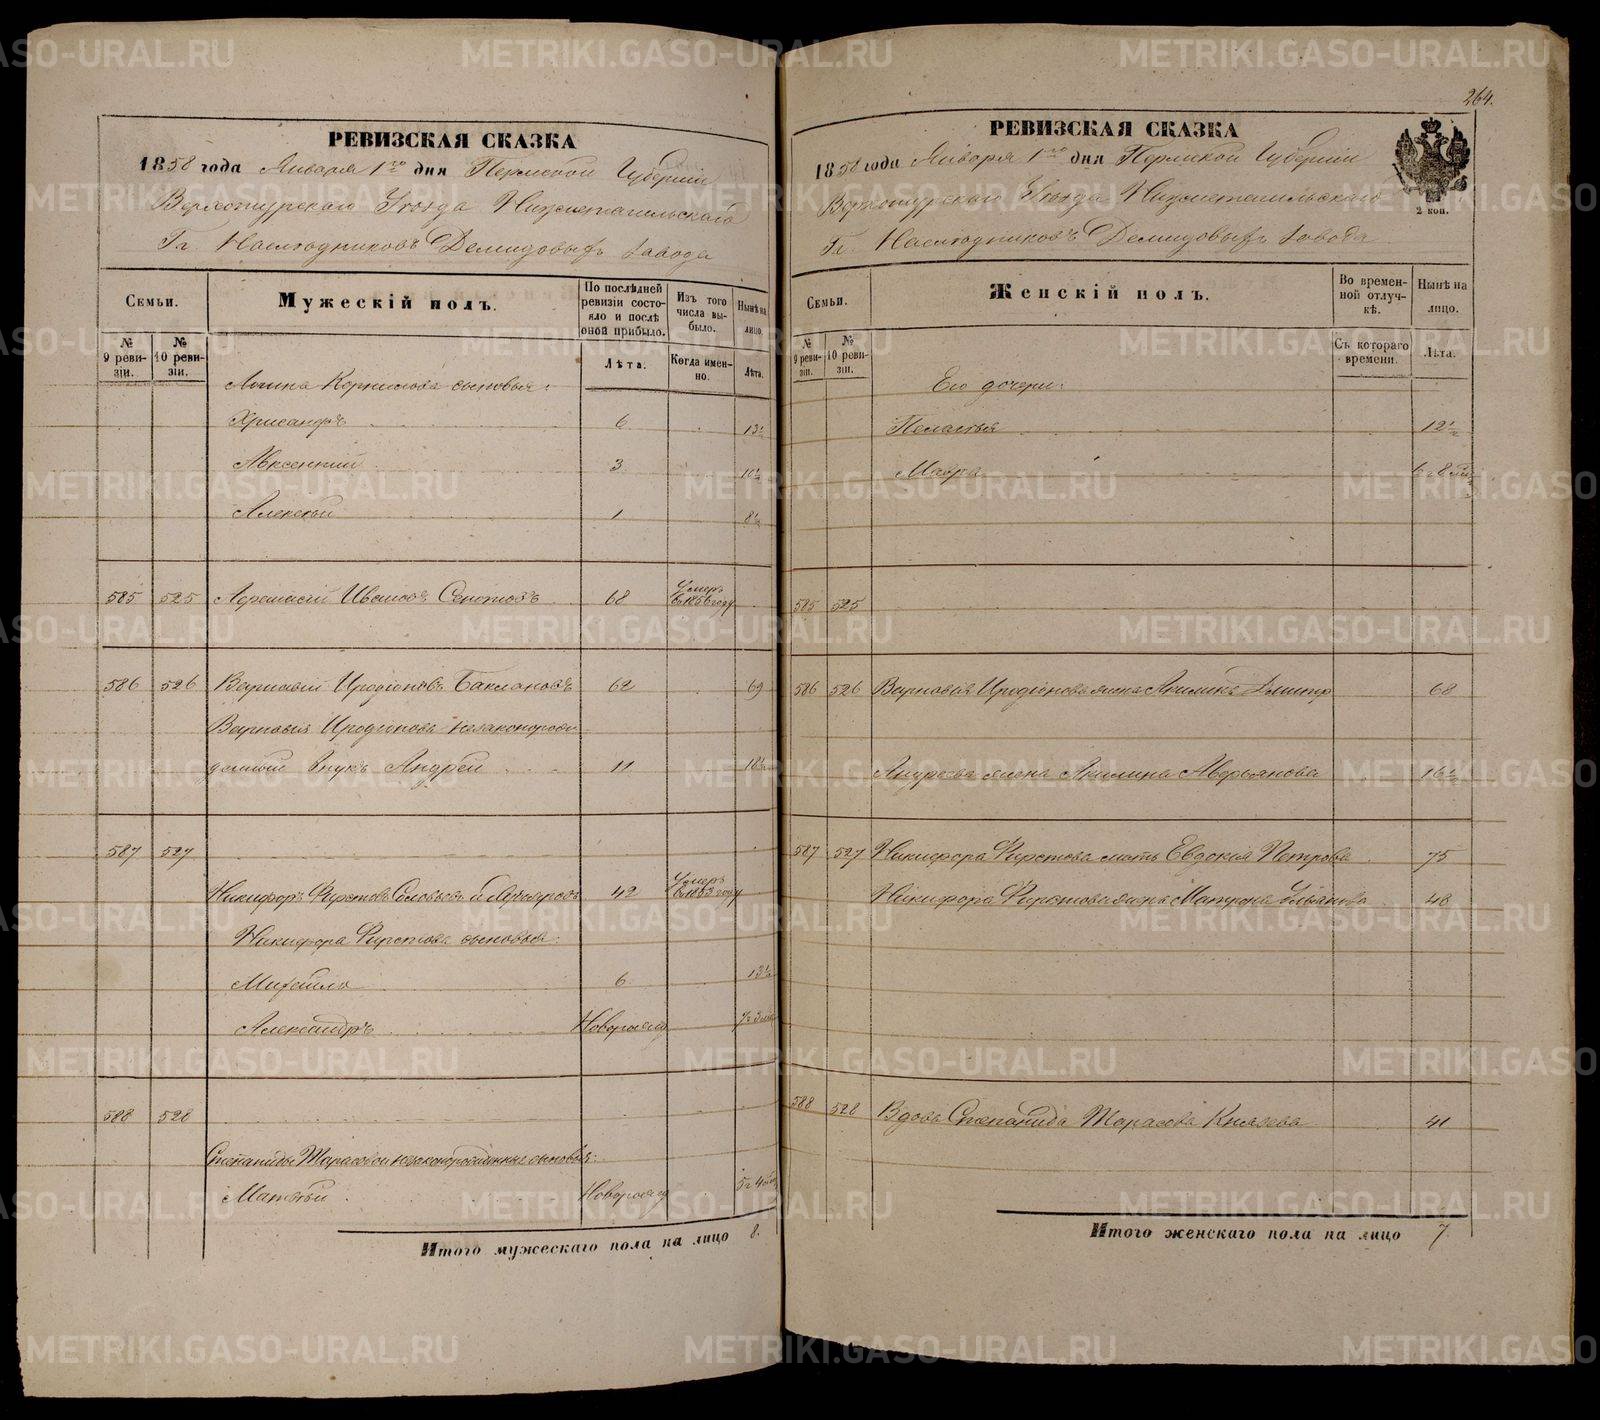 264.
РЕВИЗСКАЯ СКАЗКА
1858 года Января 1го дня Пермской Губерніи
Верхотурскаго Уѣзда Нижнетагильскаго
Гг. Наслѣдниковъ Демидовыхъ завода
Семьи.
Мужескій полъ.
По послѣдней ревизіи состояло и послѣ оной прибыло.
Изъ того числа выбыло.
Нынѣ на лицо.
№ 9 ревизіи.
№ 10 ревизіи.
Лѣта.
Когда именно.
Лѣта.
Логина Корнилова сыновья:
Хрисанфъ 6 13½
Авксентий 3 10½
Алексѣй 1 8½
585 525 Иванов 68 Умеръ в 1856 году
586 526 Варнавій Иродіоновъ Баклановъ 62 69
Варнавія Иродіонова незаконорож
денный внукъ Андрей 11 18½
587 527
Никифоръ Фирстовъ 42 Умеръ в 1853 году
Никифора Фирстова сыновья:
Михайло 6 13½
Александръ Новорожд
588 528
Степаниды Тарасовой незаконорожденные сыновья:
Матвѣй Новорожд
Итого мужескаго пола на лицо 8.
РЕВИЗСКАЯ СКАЗКА
1858 года Января 1го дня Пермской Губерніи
Верхотурскаго Уѣзда Нижнетагильскаго
Гг. Наслѣдниковъ Демидовыхъ завода
2 коп.
Семьи.
Женскій полъ.
Во временной отлучкѣ.
Нынѣ на лицо.
№ 9 ревизіи.
№ 10 ревизіи.
Съ котораго времени.
Лѣта.
Его дочери:
Пелагея 12½
Мавра
585 525
586 526 Варнавія Иродіонова жена 68
Андреева жена Акилина Аверьянова 16½
587 527 Никифора Фирстова мать Евдокія Петрова 75
Никифора Фирстова жена Матрона 48
588 528 Вдова Степанида Тарасова Князева 41
Итого женскаго пола на лицо 7.
METRIKI.GASO-URAL.RU